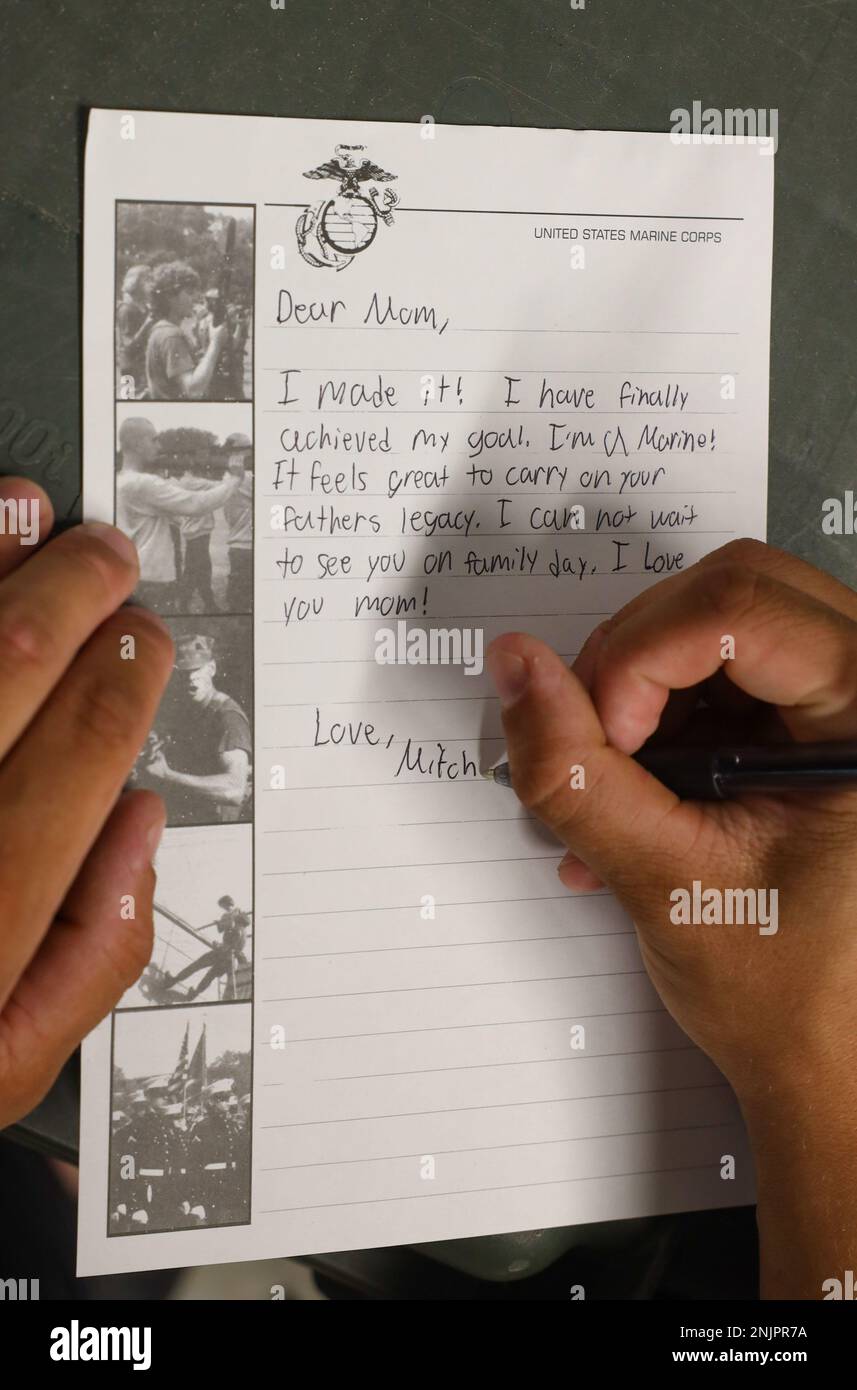 UNITED STATES MARINE CORPS
Dear Mom,
I made it! I have finally
achieved my goal. I'm a Marine!
It feels great to carry on your
fathers legacy. I can not wait
to see you on family day. I Love
you mom!
Love,
Mitch
alamy
a
alamy
Image ID: 2NJPR7A
www.alamy.com